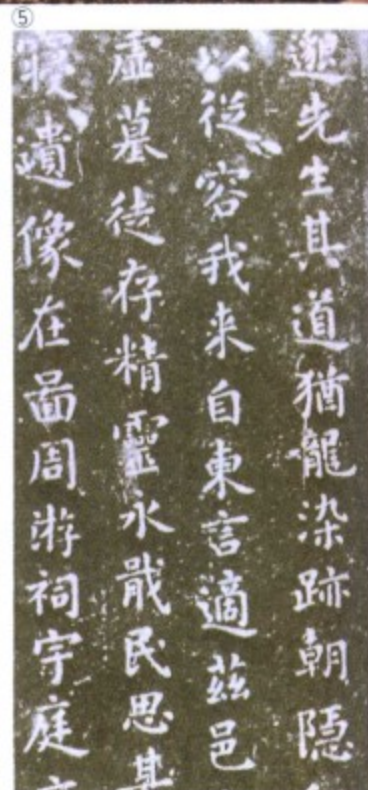 邈先生其道猶龍染跡朝隱
以從容我来自東言適茲邑
虛墓徒存精靈永戢民思其
寢遺像在啚周游祠宇庭